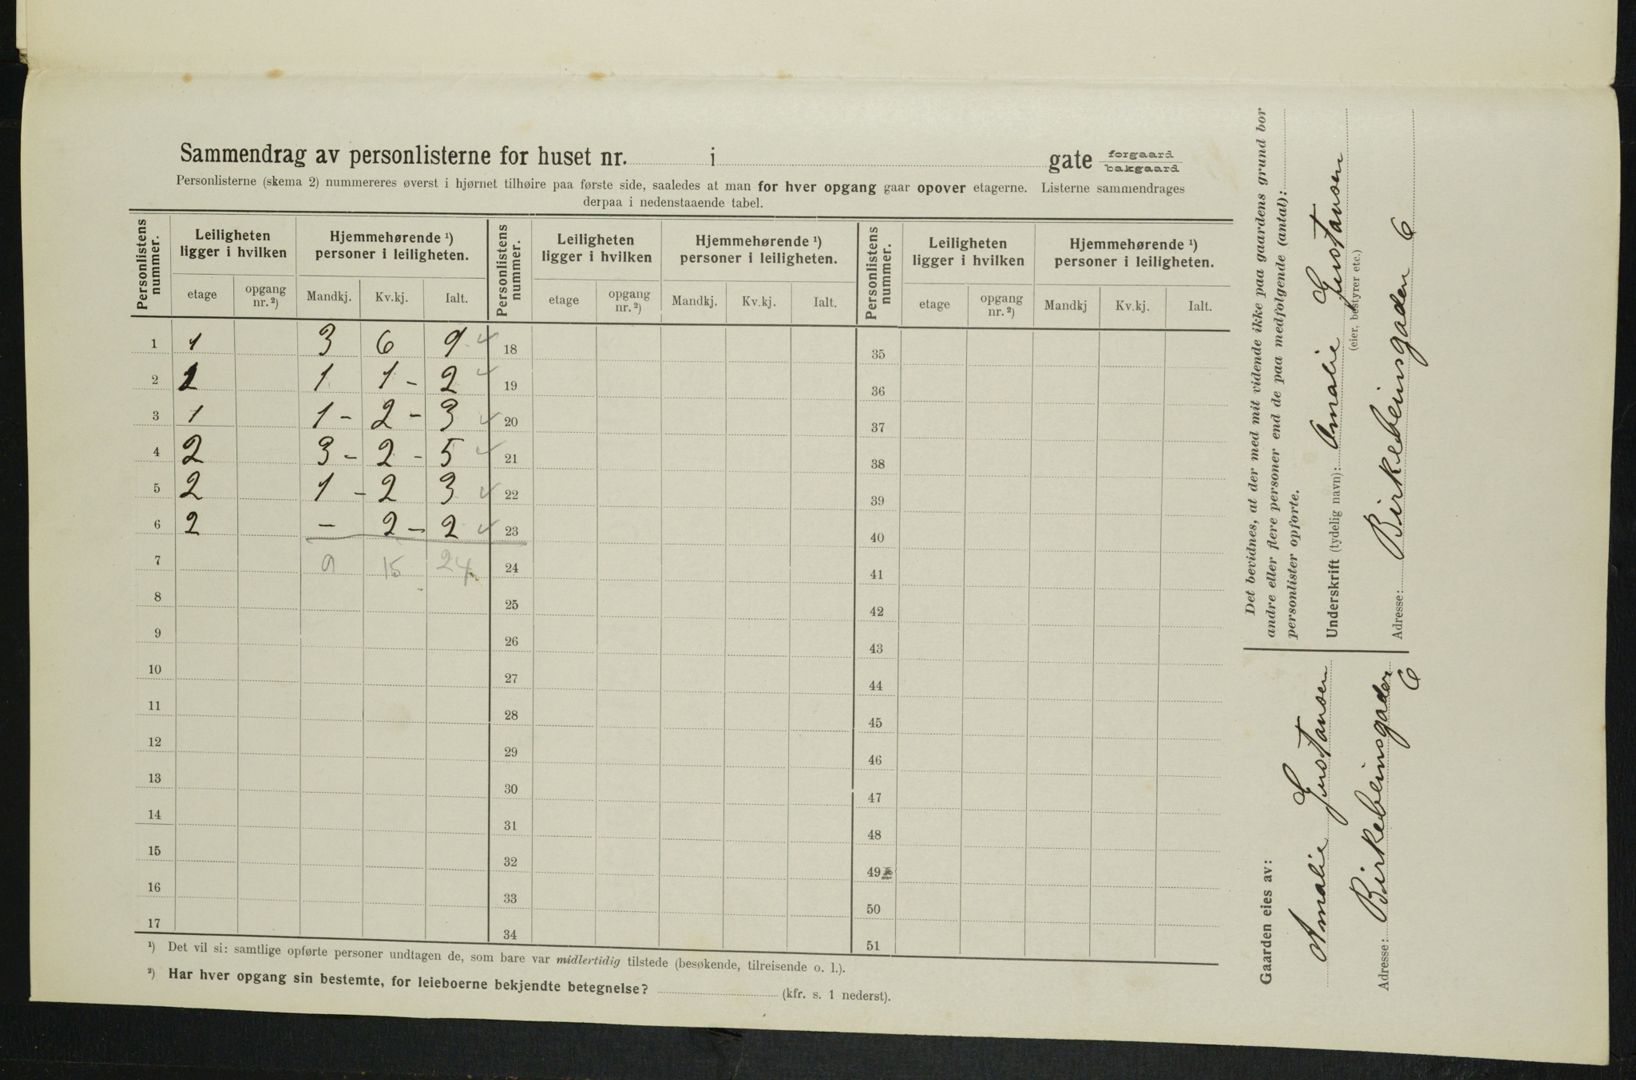 Sammendrag av personlisterne for huset nr. i gate forgaard bakgaard
Personlisterne (skema 2) nummereres øverst i hjørnet tilhøire paa første side, saaledes at man for hver opgang gaar opover etagerne. Listerne sammendrages
derpaa i nedenstaaende tabel.
Personlistens nummer. Leiligheten ligger i hvilken Hjemmehørende ¹) personer i leiligheten. Personlistens nummer. Leiligheten ligger i hvilken Hjemmehørende ¹) personer i leiligheten. Personlistens nummer. Leiligheten ligger i hvilken Hjemmehørende ¹) personer i leiligheten.
etage opgang nr. ²) Mandkj. Kv.kj. Ialt. etage opgang nr. ²) Mandkj. Kv.kj. Ialt. etage opgang nr. ²) Mandkj Kv.kj. Ialt.
1 1 3 6 9 18 35
2 1 1 1 - 2 19 36
3 1 1 - 2 - 3 20 37
4 2 3 - 2 - 5 21 38
5 2 1 - 2 3 22 39
6 2 - 2 - 2 23 40
7 9 15 24 24 41
8 25 42
9 26 43
10 27 44
11 28 45
12 29 46
13 30 47
14 31 48
15 32 49
16 33 50
17 34 51
¹) Det vil si: samtlige opførte personer undtagen de, som bare var midlertidig tilstede (besøkende, tilreisende o. l.).
²) Har hver opgang sin bestemte, for leieboerne bekjendte betegnelse? (kfr. s. 1 nederst).
Det bevidnes, at der med mit vidende ikke paa gaardens grund bor
andre eller flere personer end de paa medfølgende (antal):
personlister opførte.
Underskrift (tydelig navn): Amalie Gustansen
(eier, bestyrer etc.)
Adresse: Birkebeinsgaden 6
Gaarden eies av:
Amalie Gustansen
Adresse: Birkebeinsgaden 6